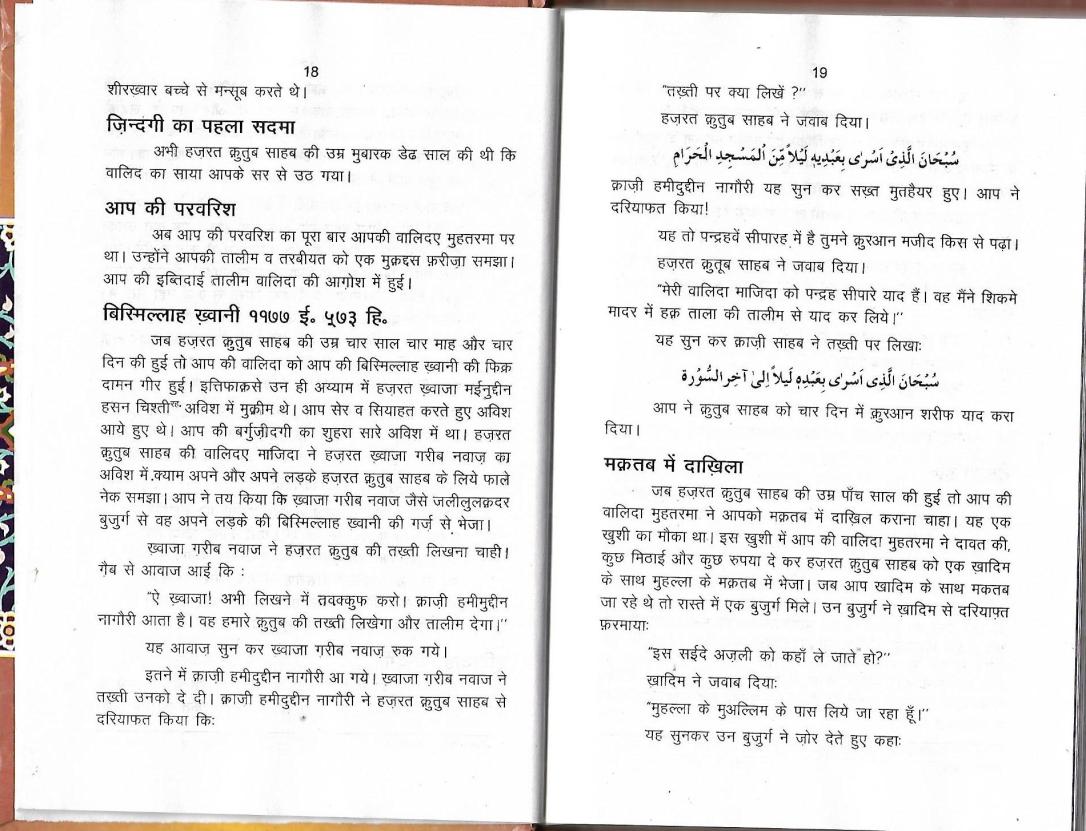 18
शीरख्वार बच्चे से मन्सूब करते थे।
ज़िन्दंगी का पहला सदमा
अभी हज़रत क़ुतुब साहब की उम्र मुबारक डेढ साल की थी कि
वालिद का साया आपके सर से उठ गया।
आप की परवरिश
अब आप की परवरिश का पूरा बार आपकी वालिदए मुहतरमा पर
था। उन्होंने आपकी तालीम व तरबीयत को एक मुक़द्दस फ़रीज़ा समझा।
आप की इब्तिदाई तालीम वालिदा की आग़ोश में हुई।
बिस्मिल्लाह ख़्वानी ११७७ ई० ५७३ हि०
जब हज़रत क़ुतुब साहब की उम्र चार साल चार माह और चार
दिन की हुई तो आप की वालिदा को आप की बिस्मिल्लाह ख्वानी की फिक्र
दामन गीर हुई। इत्तिफाक़से उन ही अय्याम में हज़रत ख्वाजा मईनुद्दीन
हसन चिश्ती अविश में मुक़ीम थे। आप सेर व सियाहत करते हुए अविश
आये हुए थे। आप की बर्गुज़ीदगी का शुहरा सारे अविश में था। हज़रत
क़ुतुब साहब की वालिदए माजिदा ने हज़रत ख़्वाजा गरीब नवाज़ का
अविश में क्याम अपने और अपने लड़के हज़रत क़ुतुब साहब के लिये फाले
नेक समझा। आप ने तय किया कि ख़्वाजा गरीब नवाज जैसे जलीलुलक़दर
बुज़ुर्ग से वह अपने लड़के की बिस्मिल्लाह ख्वानी की गर्ज़ से भेजा।
ख्वाजा ग़रीब नवाज ने हज़रत क़ुतुब की तख़्ती लिखना चाही।
ग़ैब से आवाज आई कि :
"ऐ ख़्वाजा! अभी लिखने में तवक्कुफ करो। क़ाज़ी हमीमुद्दीन
नागौरी आता है। वह हमारे क़ुतुब की तख्ती लिखेगा और तालीम देगा।"
यह आवाज़ सुन कर ख्वाजा ग़रीब नवाज़ रुक गये।
इतने में क़ाज़ी हमीदुद्दीन नागौरी आ गये। ख्वाजा ग़रीब नवाज ने
तख़्ती उनको दे दी। क़ाज़ी हमीदुद्दीन नागौरी ने हज़रत क़ुतुब साहब से
दरियाफत किया किः
19
"तख़्ती पर क्या लिखें ?"
हज़रत क़ुतुब साहब ने जवाब दिया।
سُبْحَانَ الَّذِیْ اَسْرٰی بِعَبْدِیهٖ لَیْلاً مِّنَ اْلمَسْجِدِ الْحَرَامِ
क़ाज़ी हमीदुद्दीन नागौरी यह सुन कर सख़्त मुतहैयर हुए। आप ने
दरियाफत किया!
यह तो पन्द्रहवें सीपारह में है तुमने क़ुरआन मजीद किस से पढ़ा।
हज़रत क़ुतूब साहब ने जवाब दिया।
"मेरी वालिदा माजिदा को पन्द्रह सीपारे याद हैं। वह मैंने शिकमे
मादर में हक़ ताला की तालीम से याद कर लिये।"
यह सुन कर क़ाज़ी साहब ने तख़्ती पर लिखाः
سُبْحَانَ الَّذِی اَسْرٰی بِعَبْدِهٖ لَیْلاً اِلیٰ آخِرِ السُّوْرَة
आप ने क़ुतुब साहब को चार दिन में क़ुरआन शरीफ याद करा
दिया।
मक़तब में दाख़िला
जब हज़रत क़ुतुब साहब की उम्र पाँच साल की हुई तो आप की
वालिदा मुहतरमा ने आपको मक़तब में दाख़िल कराना चाहा। यह एक
खुशी का मौका था। इस खुशी में आप की वालिदा मुहतरमा ने दावत की,
कुछ मिठाई और कुछ रुपया दे कर हज़रत क़ुतुब साहब को एक ख़ादिम
के साथ मुहल्ला के मक़तब में भेजा। जब आप खादिम के साथ मकतब
जा रहे थे तो रास्ते में एक बुजुर्ग मिले। उन बुजुर्ग ने ख़ादिम से दरियाफ़्त
फ़रमायाः
"इस सईदे अज़ली को कहाँ ले जाते हो?"
ख़ादिम ने जवाब दियाः
"मुहल्ला के मुअल्लिम के पास लिये जा रहा हूँ।"
यह सुनकर उन बुजुर्ग ने ज़ोर देते हुए कहाः